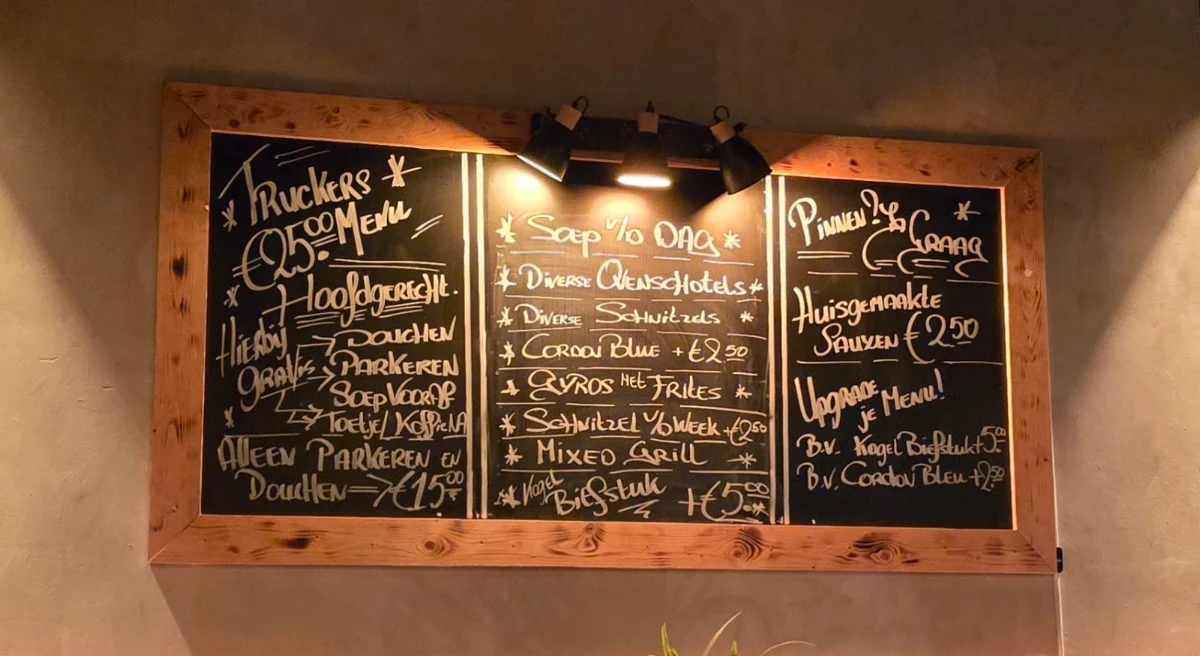 Truckers
€25.00 Menu
Hoofdgerecht.
Hierbij
gratis
Douchen
Parkeren
Soep Vooraf
Toetje/Koffie NA
Alleen Parkeren en
Douchen → €15.00
Soep v/d DAG
Diverse Ovenschotels
Diverse Schnitzels
Cordon Blue + €2.50
Gyros Met Frites
Schnitzel v/d Week +€2.50
Mixed Grill
Kogel Biefstuk +€5.00
Pinnen? Ja Graag
Huisgemaakte
Sauzen €2.50
Upgrade
je Menu!
B.v. Kogel Biefstuk+5.00
B.v. Cordon Bleu +2.50